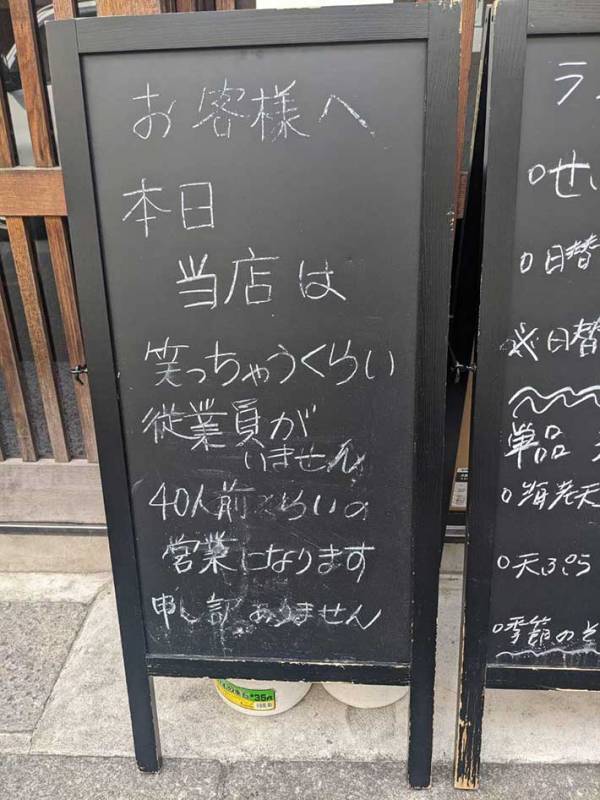 お客様へ
本日
当店は
笑っちゃうくらい
従業員が
いません
40人前くらいの
営業になります
申し訳ありません
ラ
○せい
○日替
※日替
単品
○海老天
○天ぷら
○季節の